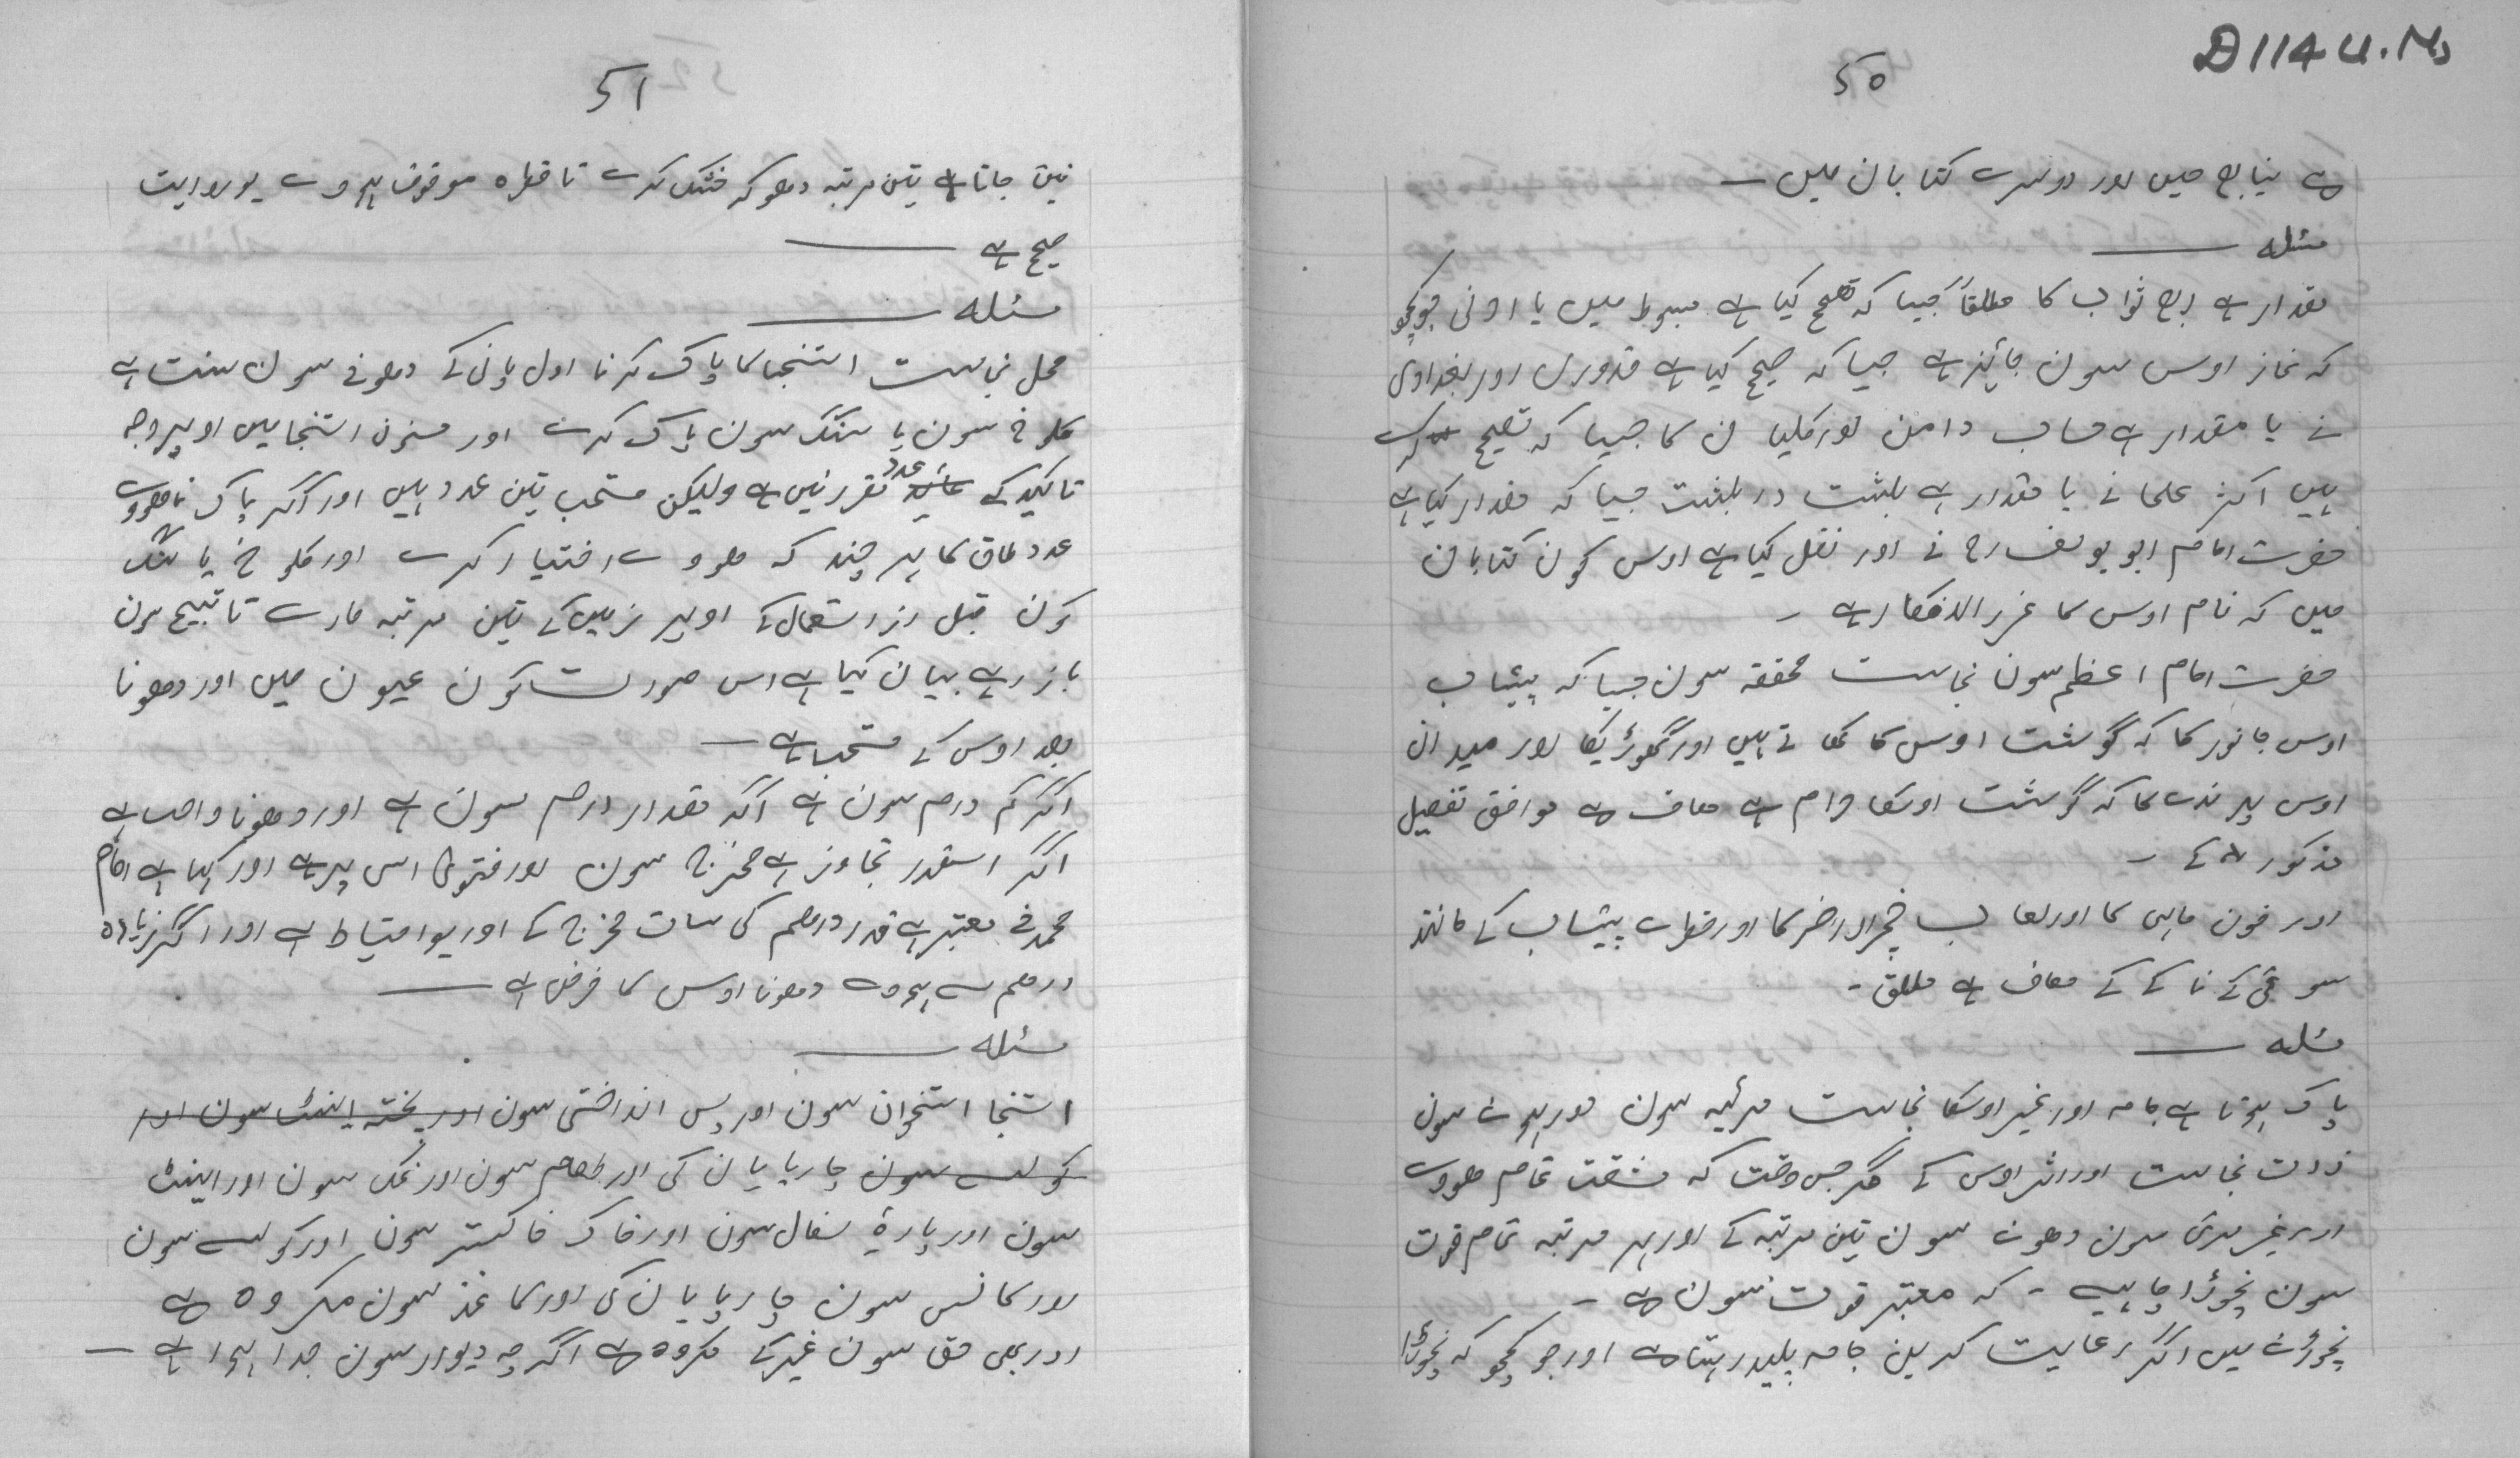 D 114 U.Ms
۵۰
ہے ینابع میں اور دوسرے کتابان میں ـ
مسئلہ
مقدار ہے ربع ثواب کا مطلقاً جیسا کہ تصحیح کیا ہے مبسوط میں یا ادنیٰ جو کچھ
کہ نماز اوس سون جائز ہے جیسا کہ صحیح کیا ہے قدوری اور بغدادی
نے یا مقدار ہے حساب دامن اور کلیان کا جیسا کہ تصحیح کرے
ہیں اکثر علما نے یا مقدار ہے بلشت در بلشت جیسا کہ مقدار کیا ہے
حضرت امام ابو یوسف رح نے اور نقل کیا ہے اوس کون کتابان
میں کہ نام اوس کا غرر الافکار ہے ـ
حضرت امام اعظم سون نجاست محققہ سون جیسا کہ پیشاب
اوس جانور کا کہ گوشت اوس کا کھاتے ہیں اور گھوڑیکا اور میدان
اوس پرندے کا کہ گوشت اوسکا حرام ہے معاف ہے موافق تفصیل
مذکورہ کے ـ
اور خون ماہی کا اور لعاب خچر اور خر کا اور قطرے پیشاب کے مانند
سوئی کے ناکے کے معاف ہے مطلق ـ
مسئلہ
پاک ہوتا ہے جامہ اور غیر اوسکا نجاست مرئیہ سون دور ہونے سون
ذات نجاست اور اثر اوس کے مگر جس وقت کہ مشقت تمام ہووے
اور غیر مرئی سون دھونے سون تین مرتبہ کے اور ہر مرتبہ تمام قوت
سون نچوڑا چاہیے ـ کہ معتبر قوت سون ہے ـ
نچوڑنے میں اگر رعایت کریں جامہ پلید رہتا ہے اور جو کچھ کہ نچوڑا
۵۱
نیں جاتا ہے تین مرتبہ دھو کہ خشک کرے تا قطرہ موقوف ہووے یو روایت
صحیح ہے
مسئلہ
محل نجاست استنجا کا پاک کرنا اول پانی کے دھونے سون سنت ہے
کلوخ سون یا سنگ سون پاک کرے اور مسنون استنجا میں اوپر وجہ
تاکید کے عدد مقرر نیں ہے ولیکن مستحب تین عدد ہیں اور اگر پاک ناہووے
عدد طاق کا ہر چند کہ ہووے اختیار کرے اور کلوخ یا سنگ
کون قبل از استعمال کے اوپر زمیں کے تین مرتبہ مارے تا تسبیح سون
باز رہے بیان کیا ہے اس صورت کون عیون میں اور دھونا
بعد اوس کے مستحب ہے ـ
اگر کم درم سون ہے اگر مقدار درھم سون ہے اور دھونا واجب ہے
اگر اسقدر تجاوز ہے مخرج سون اور فتویٰ اس پر ہے اور کہا ہے امام
محمد نے معتبر ہے قدر درھم کی سات مخرج کے اور یو احتیاط ہے اور اگر زیادہ
درھم سے ہووے دھونا اوس کا فرض ہے
مسئلہ
استنجا استخوان سون اور پس انداختی سون اور پختہ اینٹ سون اور
کولسے سون چارپایان کی اور طعام سون اور نمک سون اور اینٹ
سون اور پارۂ سفال سون اور خاک خاکستر سون اور کولسے سون
اور کانس سون چارپایان کی اور کاغذ سون مکروہ ہے
اور بھی حق سون غیر کے مکروہ ہے اگرچہ دیوار سون جدا ہوا ہے ـ